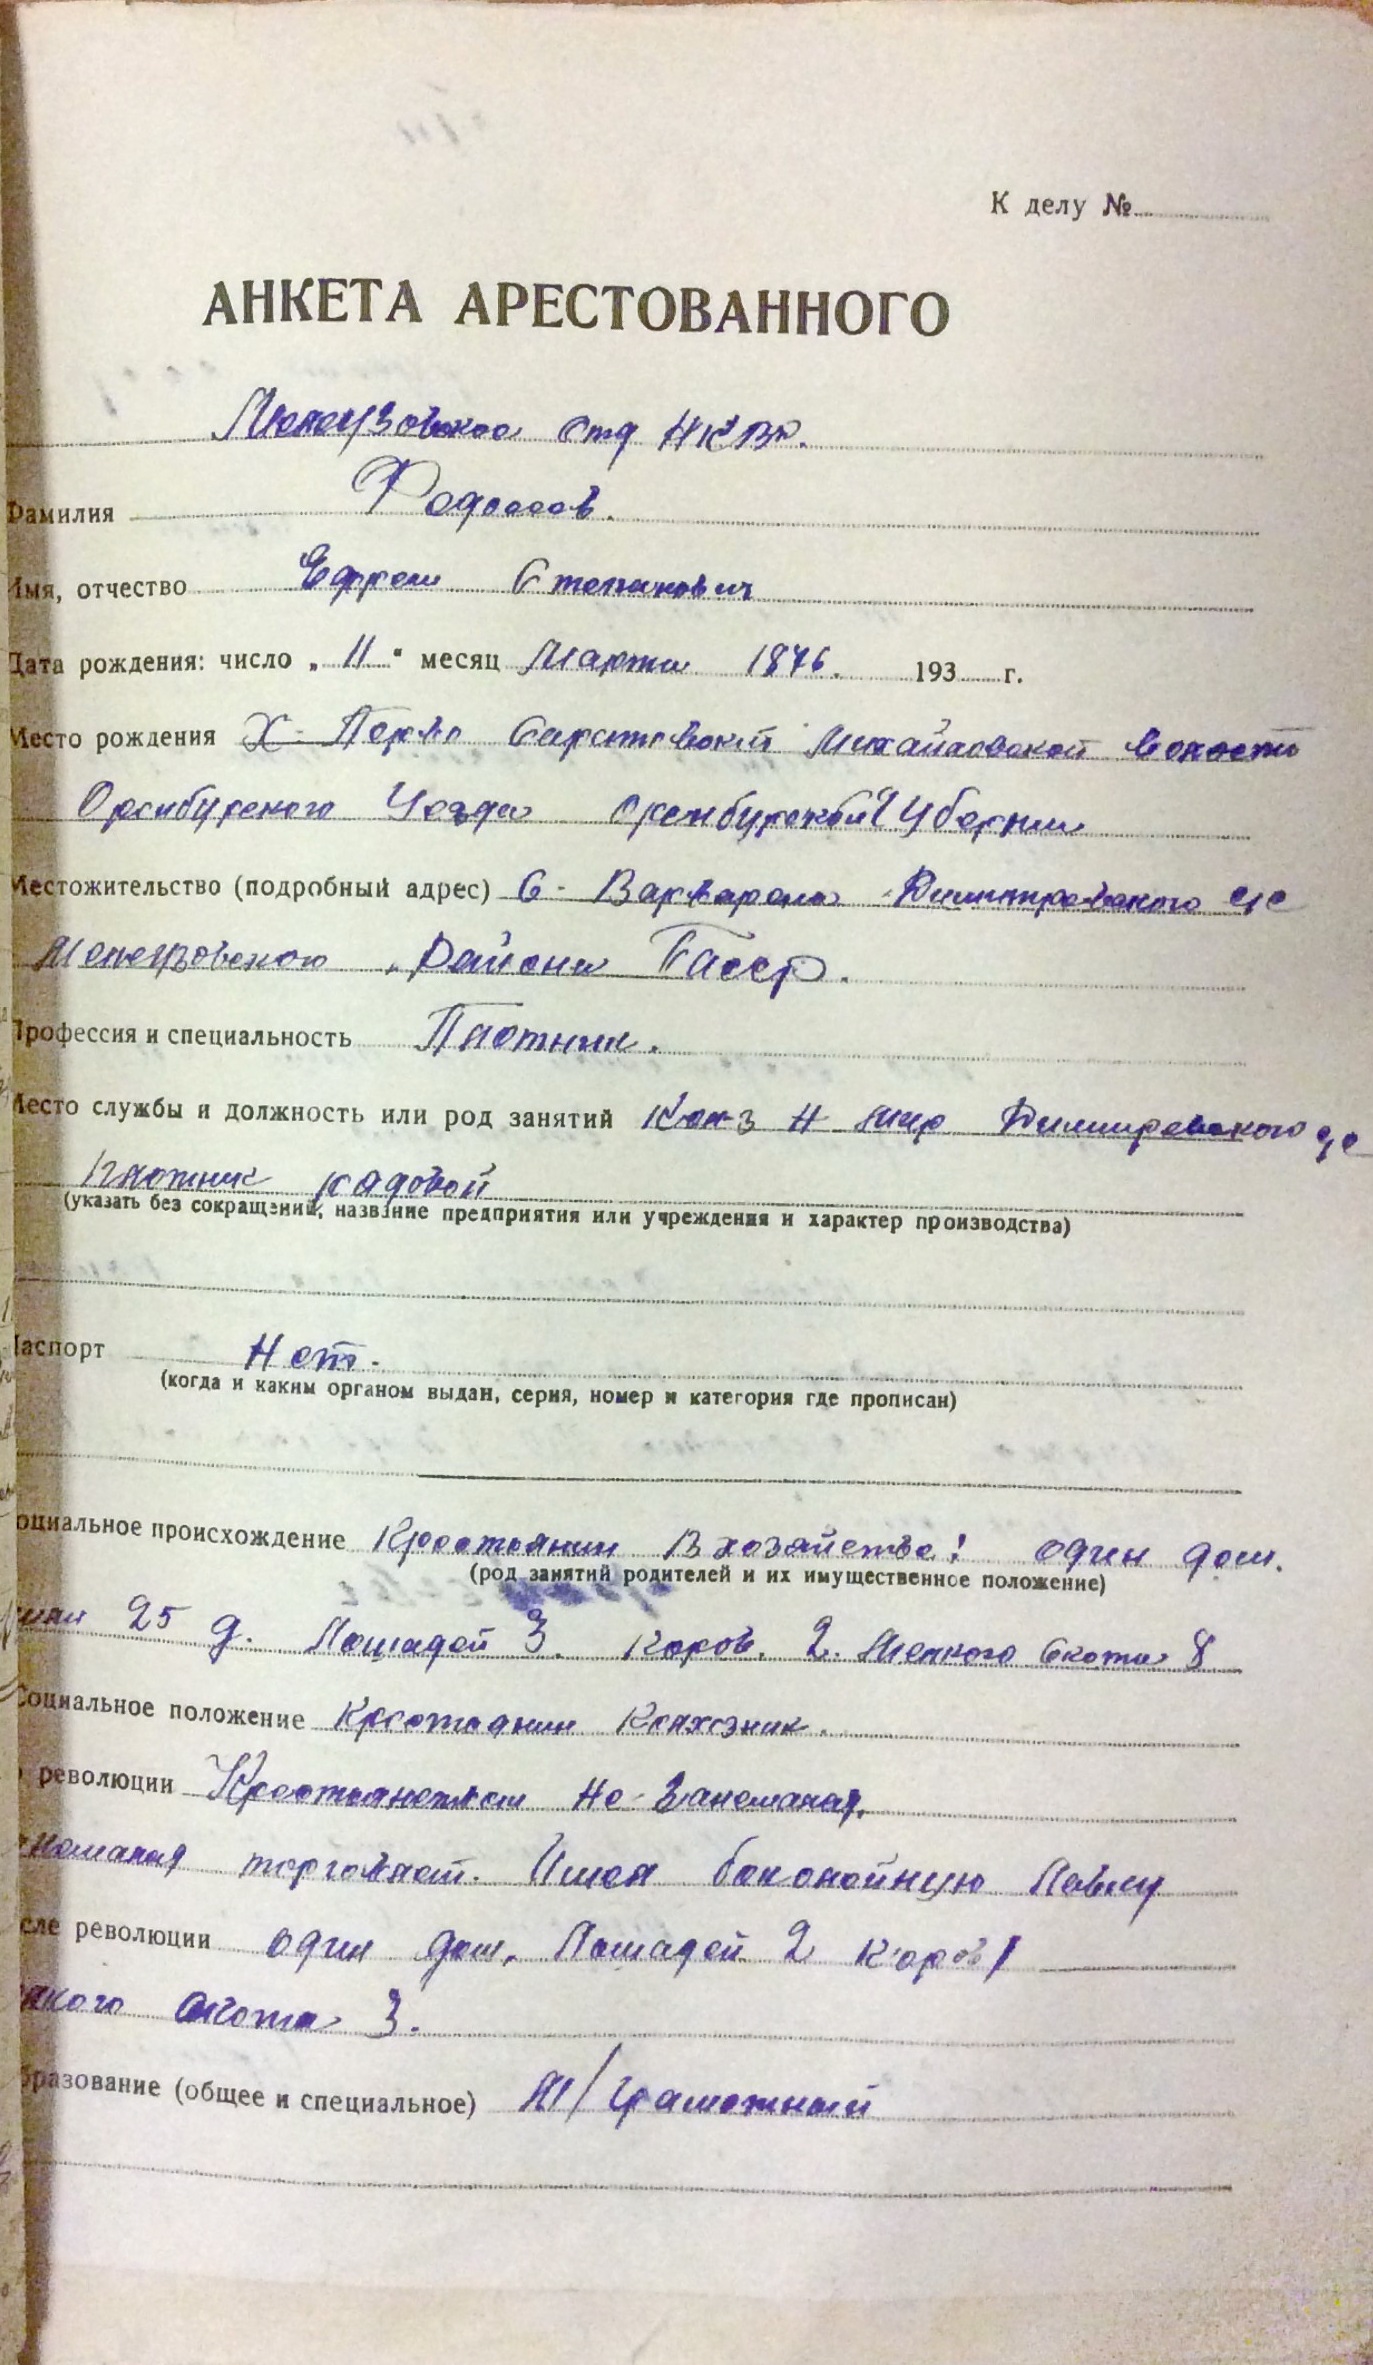 К делу №
АНКЕТА АРЕСТОВАННОГО
Мелеузовское отд НКВД.
Фамилия
Имя, отчество Ефрем Степанович
Дата рождения: число „ 11 " месяц Марта 1876. 193 г.
Место рождения Х- Перво Саратовский Михайловской волости
Оренбургского Уезда Оренбургской Губернии
Местожительство (подробный адрес) С- Варварено Димитровского с/с
Мелеузовского района Басср.
Профессия и специальность Плотник.
Место службы и должность или род занятий Кол-з Н мир Димитровского с/с
плотник рядовой
(указать без сокращений, название предприятия или учреждения и характер производства)
Паспорт Нет.
(когда и каким органом выдан, серия, номер и категория где прописан)
Социальное происхождение Крестьянин В хозяйстве: один дом.
(род занятий родителей и их имущественное положение)
25 д. Лошадей 3. Коров. 2. Мелкого скота 8
Социальное положение Крестьянин Колхозник.
революции Крестьянством Не-Занемался,
торговлей. Имел бакалейную Лавку
после революции один дом, Лошадей 2 Коров 1
мелкого скота 3.
образование (общее и специальное) М/Грамотный